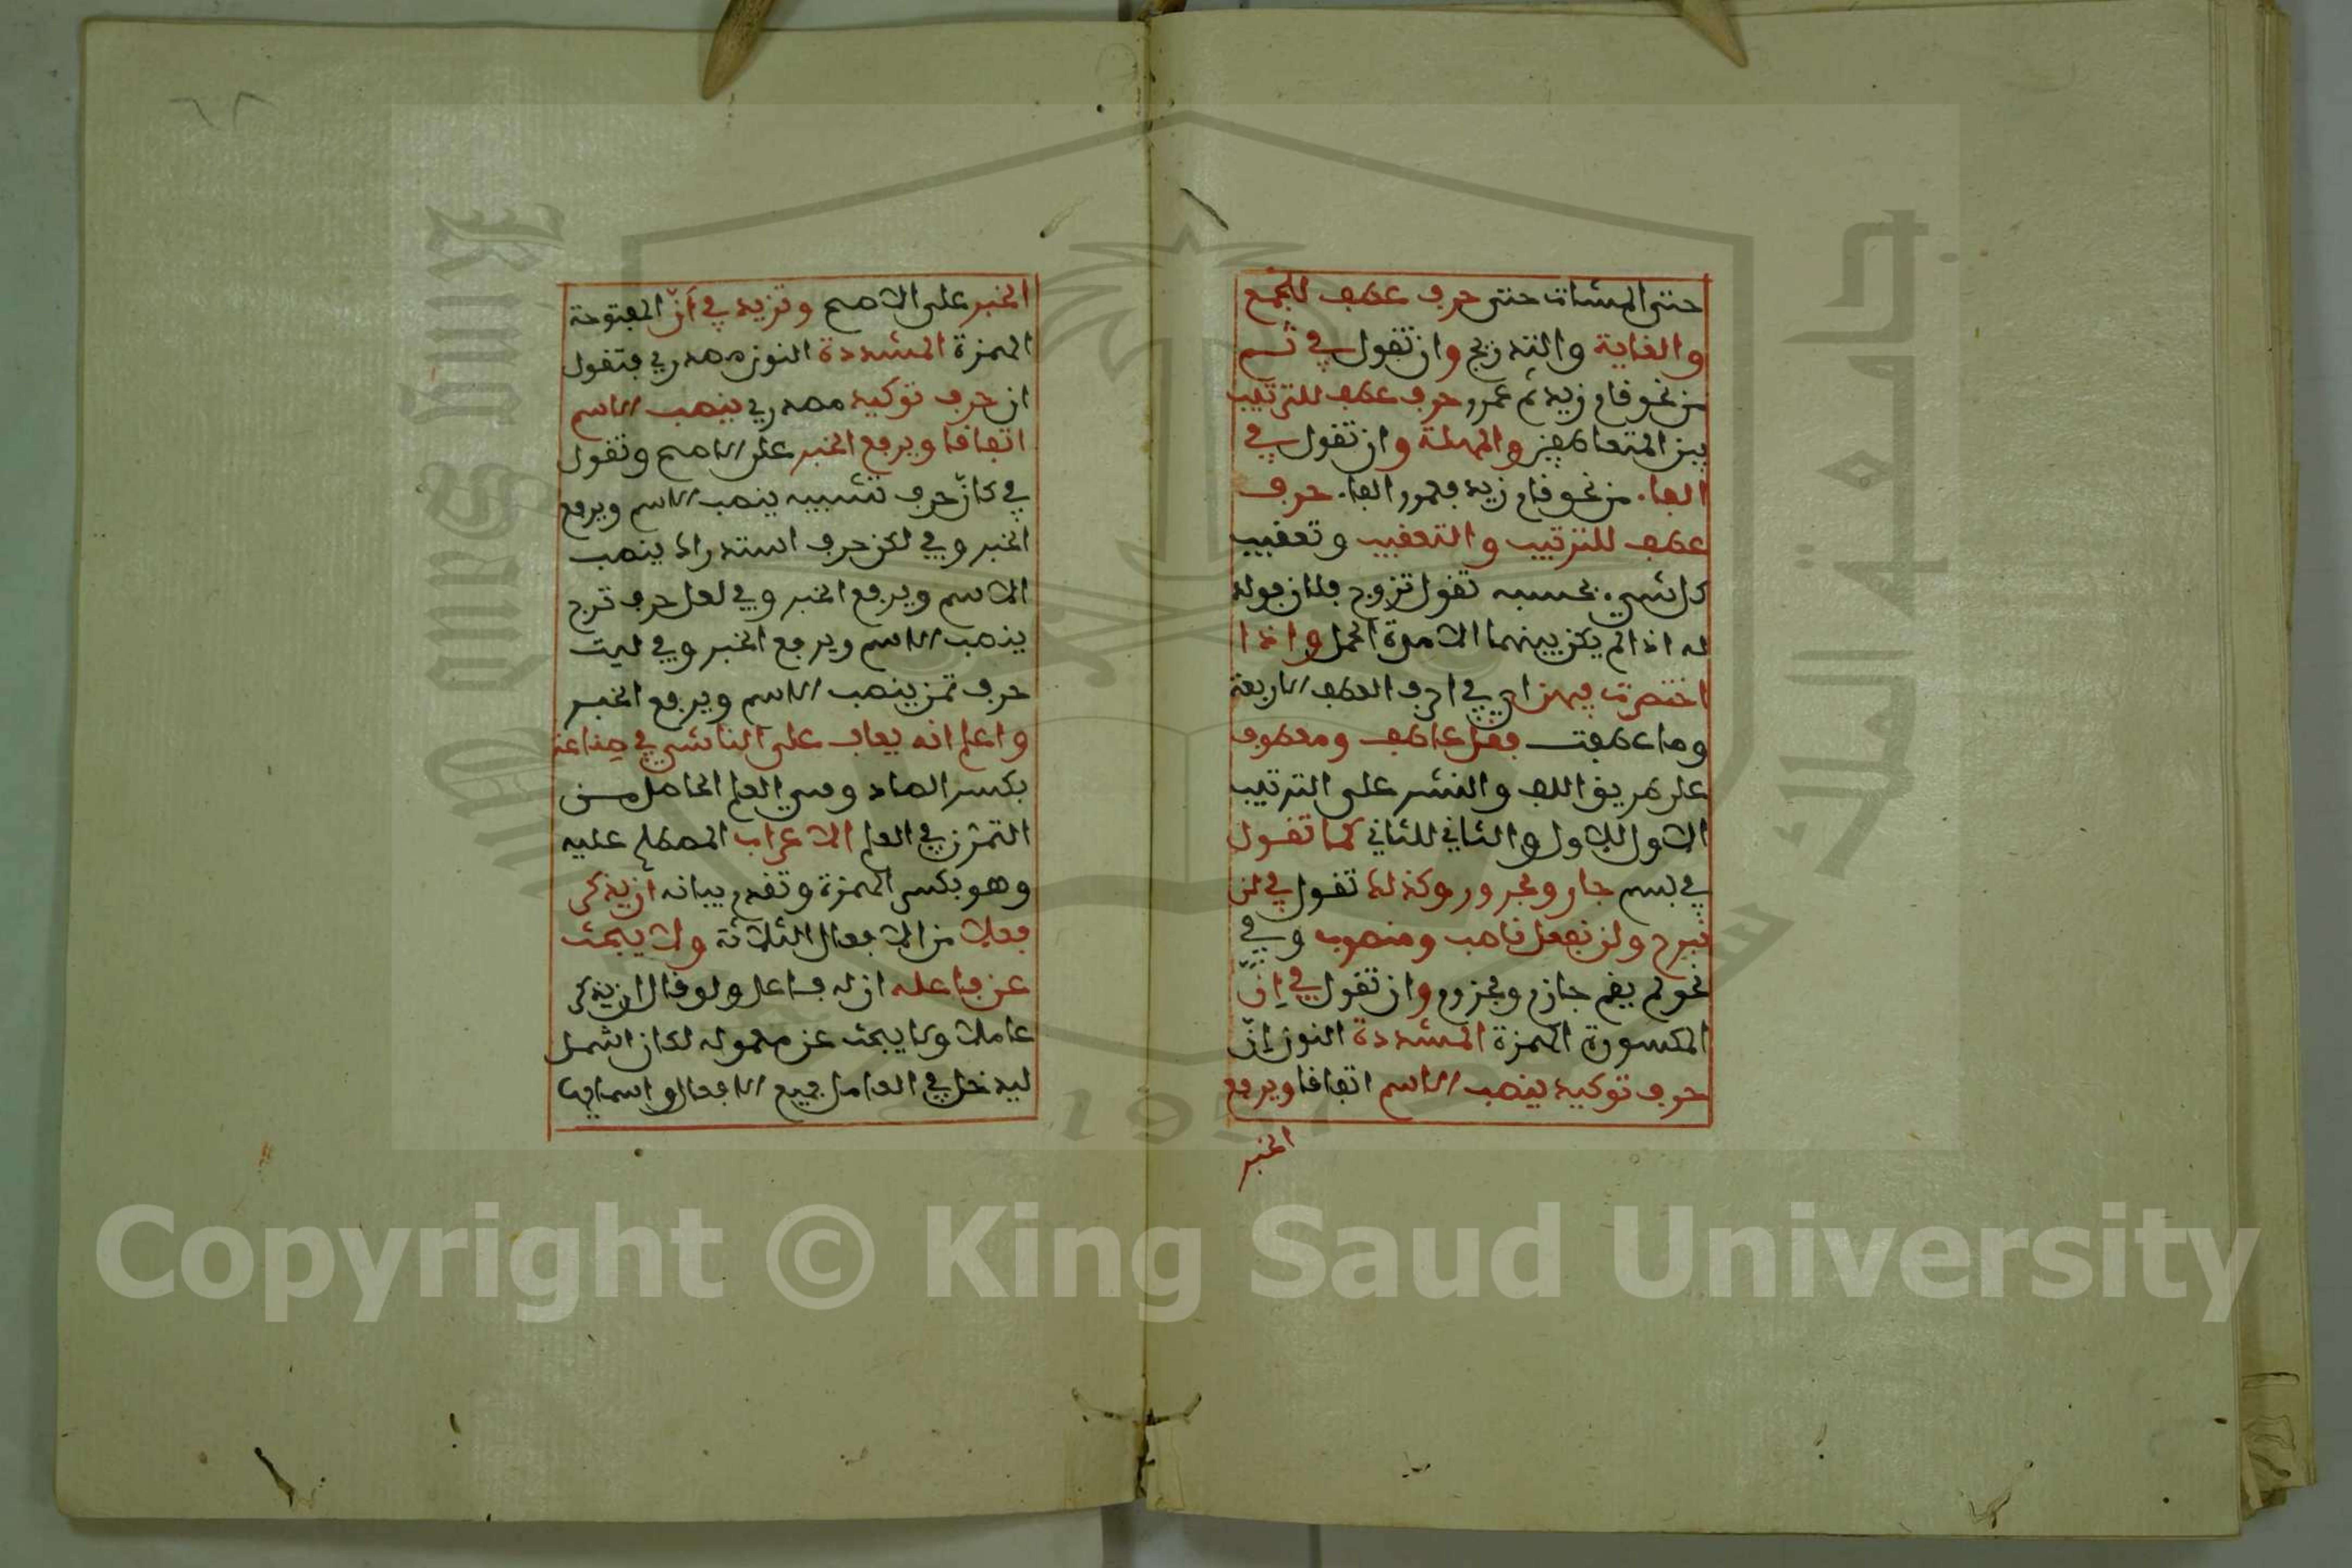 حتى المشاة حتى حرف عطف للجمع
والغاية والتدريج وان تقول في ثم
من نحو قام زيد ثم عمرو حرف عطف للترتيب
بين المتعاطفين والمهلة وان تقول في
الفاء من نحو قام زيد فعمرو الفاء حرف
عطف للترتيب والتعقيب وتعقيب
كل شيء بحسبه تقول تزوج فلان فولد
له اذا لم يكن بينهما الا مدة الحمل واذا
اختصرت فيهن اي في احرف العطف الاربعة
وما عطفت فقل عاطف ومعطوف
على طريق اللف والنشر على الترتيب
الاول للاول والثاني للثاني كما تقول
في بسم جار ومجرور وكذلك تقول في لن
نبرح ولن نفعل ناصب ومنصوب وفي
نحو لم يقم جازم ومجزوم وان تقول في اِنّ
المكسورة الهمزة المشددة النون اِنّ
حرف توكيد ينصب الاسم اتفاقا ويرفع
الخبر
الخبر على الاصح وتزيد في أنّ المفتوحة
الهمزة المشددة النون مصدري فتقول
ان حرف توكيد مصدري ينصب الاسم
اتفاقا ويرفع الخبر على الاصح وتقول
في كانّ حرف تشبيه ينصب الاسم ويرفع
الخبر وفي لكن حرف استدراك ينصب
الاسم ويرفع الخبر وفي لعل حرف ترج
ينصب الاسم ويرفع الخبر وفي ليت
حرف تمن ينصب الاسم ويرفع الخبر
واعلم انه يعاب على الناشي في صِناعة
بكسر الصاد وهي العلم الحاصل من
التمرن في العلم الاعراب المصطلح عليه
وهو بكسر الهمزة وتقدم بيانه أن يذكر
فعلا من الافعال الثلاثة ولا يبحث
عن فاعله ان له فاعل ولو قال ان يذكر
عاملا ولا يبحث عن معموله لكان اشمل
ليدخل في العامل جميع الافعال واسمايها
Copyright © King Saud University
King Saud University
جامعة الملك سعود
1957